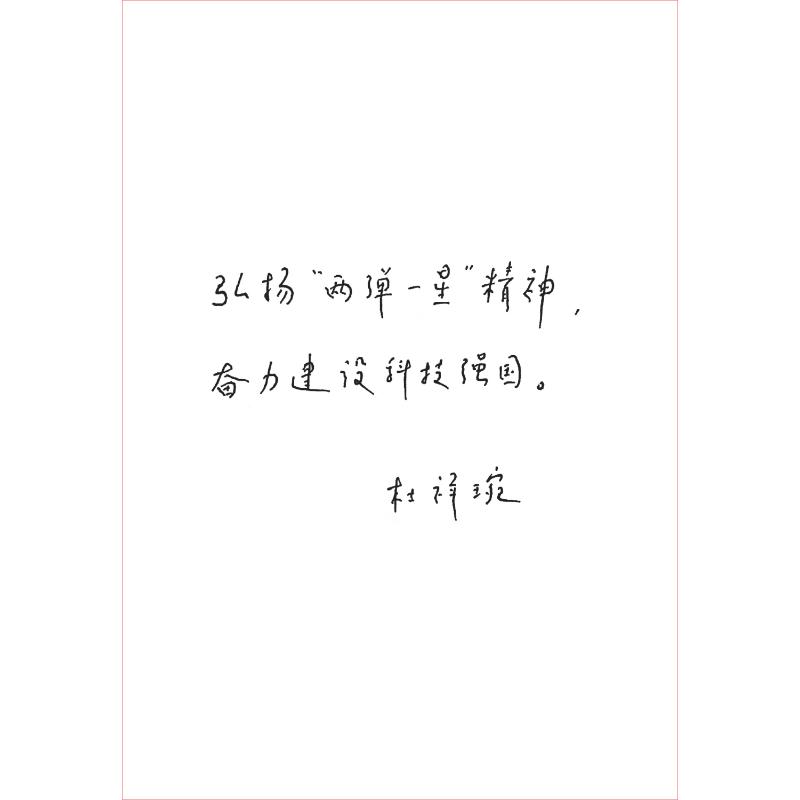 弘扬“两弹一星”精神,
奋力建设科技强国。
杜祥琬